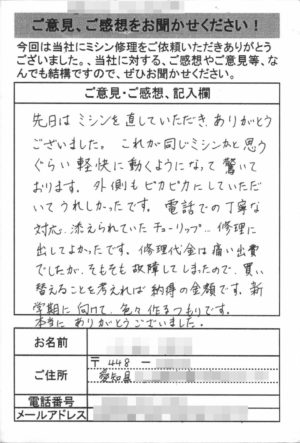 ご意見、ご感想をお聞かせください！
今回は当社にミシン修理をご依頼いただきありがとう
ございました。、当社に対する、ご感想やご意見等、な
んでも結構ですので、ぜひお聞かせください。
ご意見・ご感想、記入欄
先日はミシンを直していただき、ありがとう
ございました。これが同じミシンかと思う
ぐらい軽快に動くようになって驚いて
おります。外側もピカピカにしていただ
いてうれしかったです。電話での丁寧な
対応、添えられていたチューリップ…修理に
出してよかったです。修理代金は痛い出費
でしたが、そもそも故障してしまったので、買い
替えることを考えれば納得の金額です。新
学期に向けて、色々作るつもりです。
本当にありがとうございました。
お名前
ご住所
〒448－
愛知県
電話番号
メールアドレス